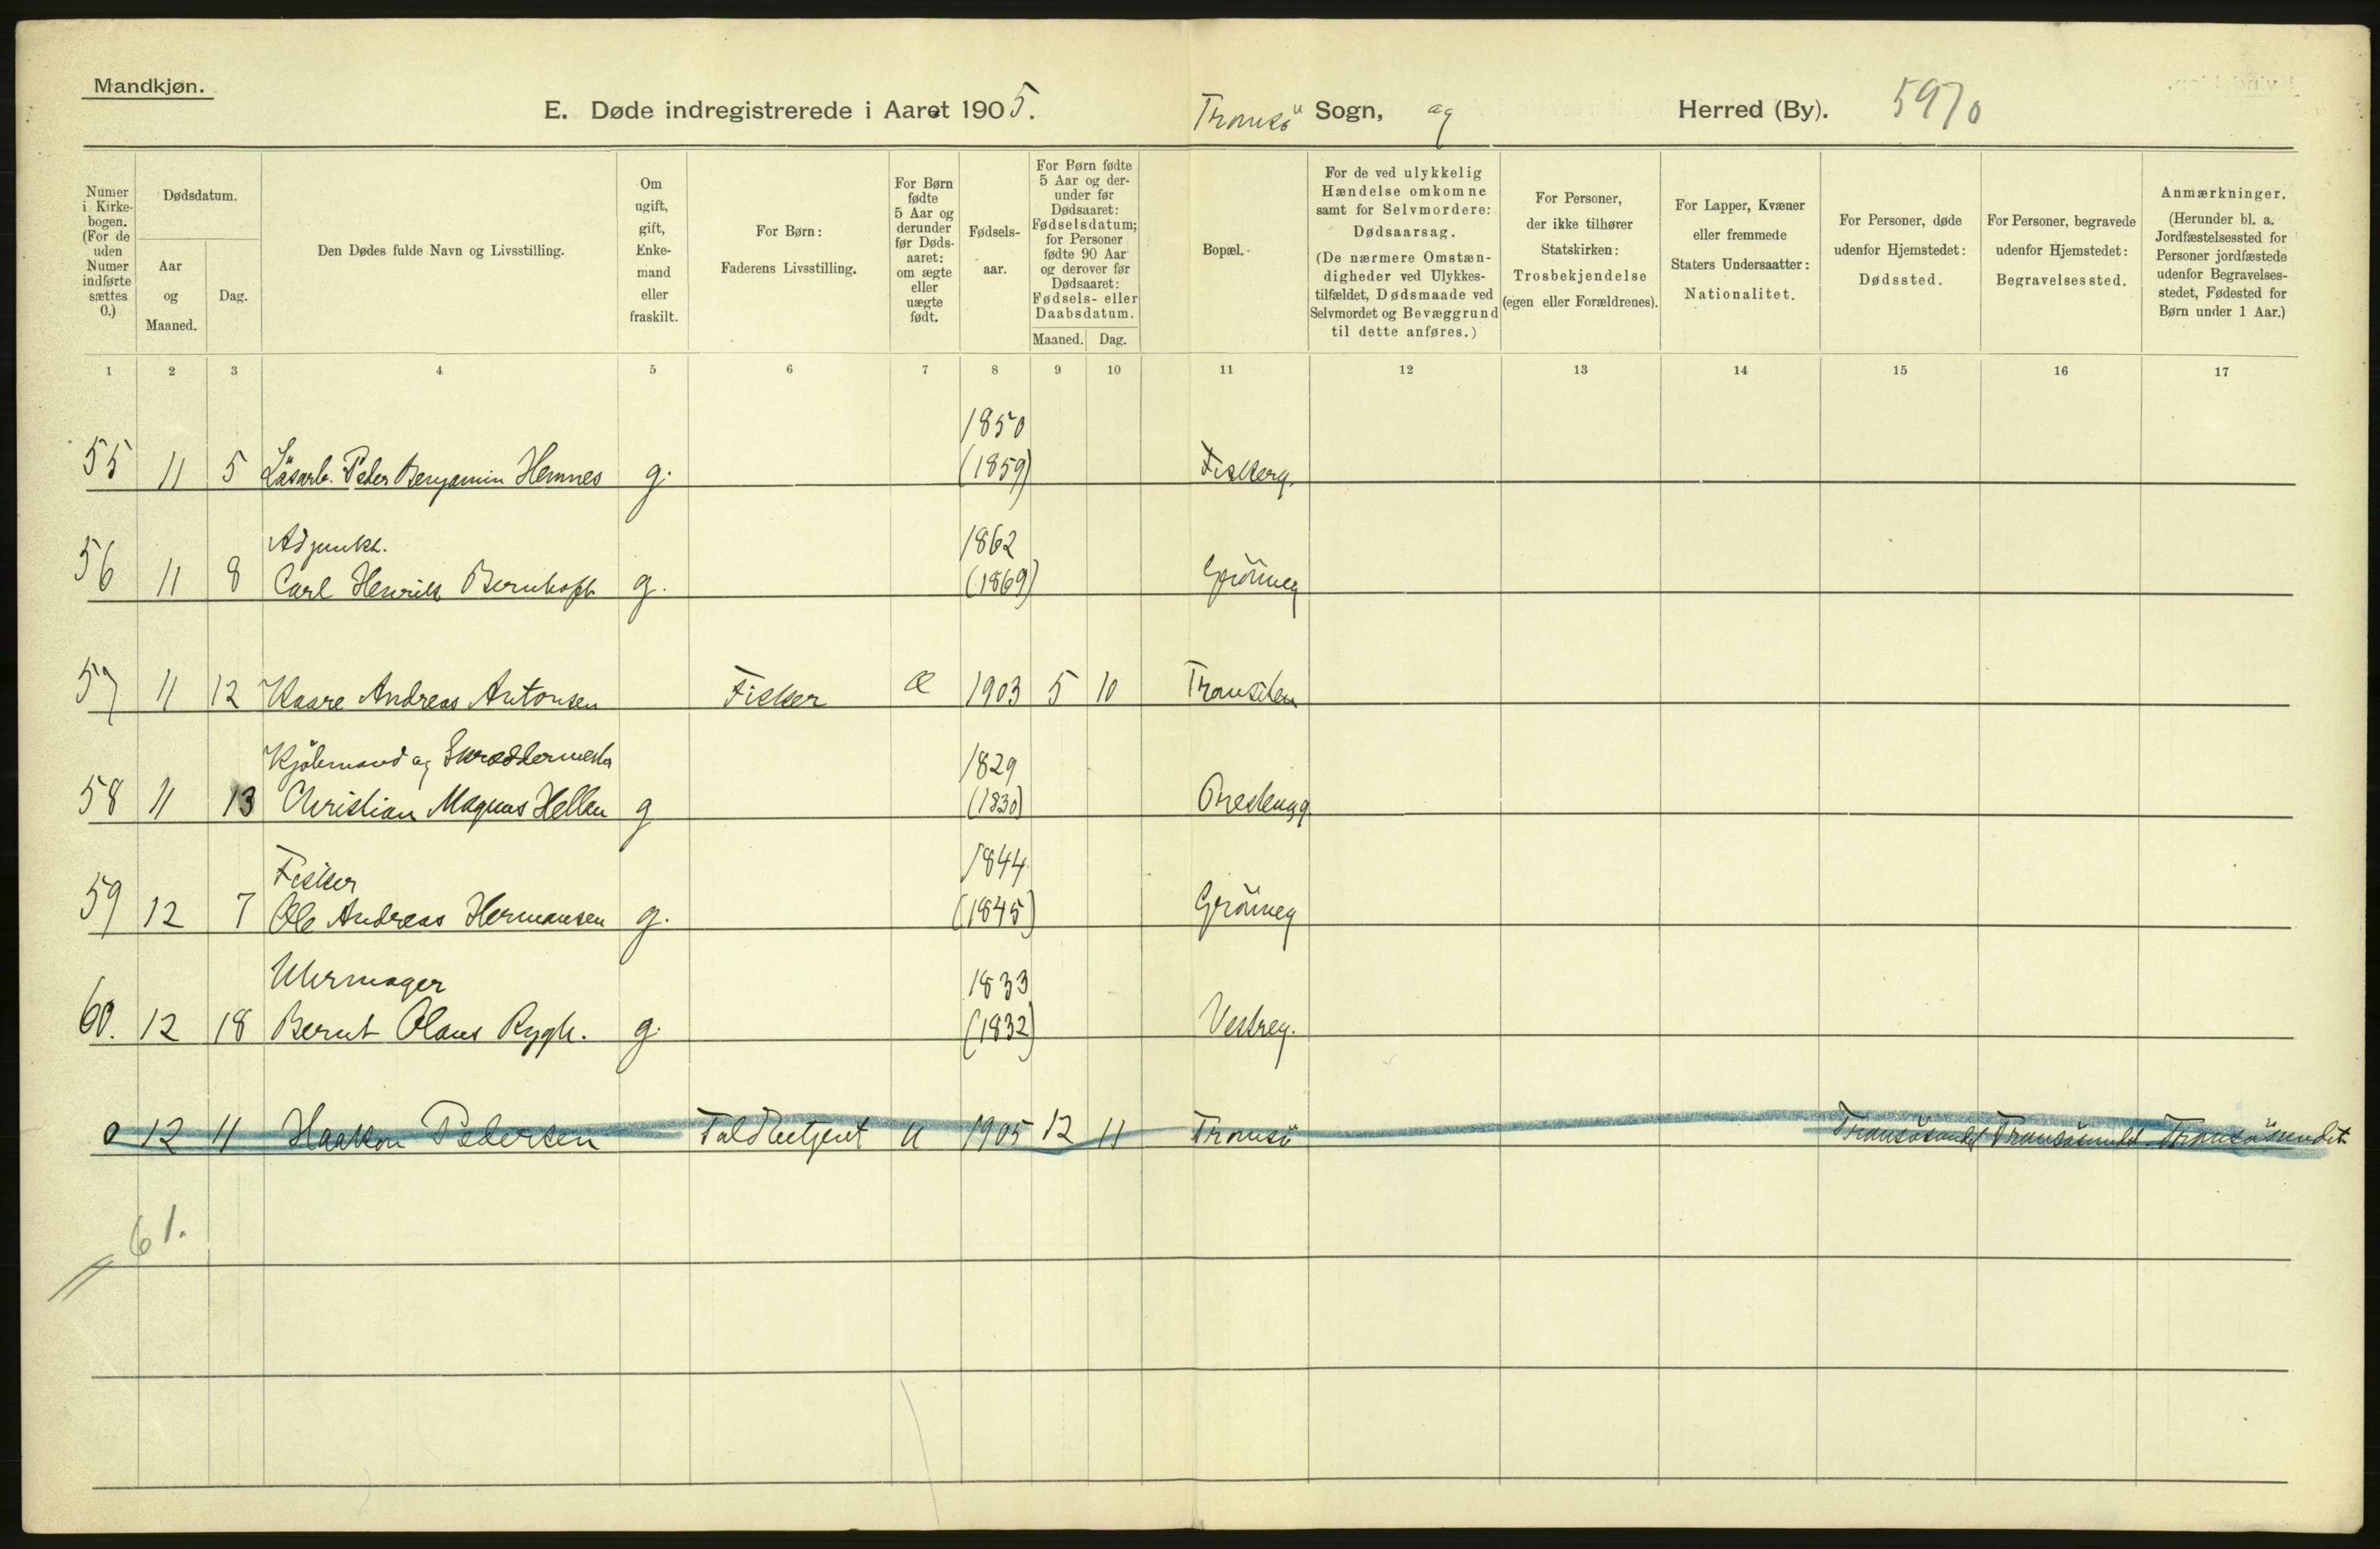 Mandkjøn.
E. Døde indregistrerede i Aaret 1905. Tromsö Sogn, og Herred (By). 5970
Numer i Kirkebogen. (For de uden Numer indførte sættes 0.)
Dødsdatum.
Aar og Maaned.
Dag.
Den Dødes fulde Navn og Livsstilling.
Om ugift, gift, Enkemand eller fraskilt.
For Børn: Faderens Livsstilling.
For Børn fødte 5 Aar og derunder før Dødsaaret: om ægte eller uægte født.
Fødselsaar.
For Børn fødte 5 Aar og derunder før Dødsaaret: Fødselsdatum; for Personer fødte 90 Aar og derover før Dødsaaret: Fødsels- eller Daabsdatum.
Maaned. Dag.
Bopæl.
For de ved ulykkelig Hændelse omkomne samt for Selvmordere: Dødsaarsag. (De nærmere Omstændigheder ved Ulykkestilfældet, Dødsmaade ved Selvmordet og Bevæggrund til dette anføres.)
For Personer, der ikke tilhører Statskirken: Trosbekjendelse (egen eller Forældrenes).
For Lapper, Kvæner eller fremmede Staters Undersaatter: Nationalitet.
For Personer, døde udenfor Hjemstedet: Dødssted.
For Personer, begravede udenfor Hjemstedet: Begravelsessted.
Anmærkninger. (Herunder bl. a. Jordfæstelsessted for Personer jordfæstede udenfor Begravelsesstedet, Fødested for Børn under 1 Aar.)
1 2 3 4 5 6 7 8 9 10 11 12 13 14 15 16 17
1850
55 11 5 Løsarb. Peder Benjamin Hemnes g. (1859) Fiskerg.
Adjunkt. 1862
56 11 8 Carl Henrik Bernhoft g. (1869) Grönneg
57 11 12 Kaare Andreas Antonsen Fisker æ 1903 5 10
Kjöbmand og Skræddermester 1829
58 11 13 Christian Magnus Hellen g (1830)
Fisker 1844
59 12 7 Ole Andreas Hermansen g. (1845) Grönneg
Uhrmager 1833
60. 12 18 Bernt Olaus Rygh. g. (1832) Vestreg.
0 12 11 Haakon Pedersen Toldbetjent u 1905 12 11 Tromsö Tromsösundet Tromsösundet Tromsösundet
61.